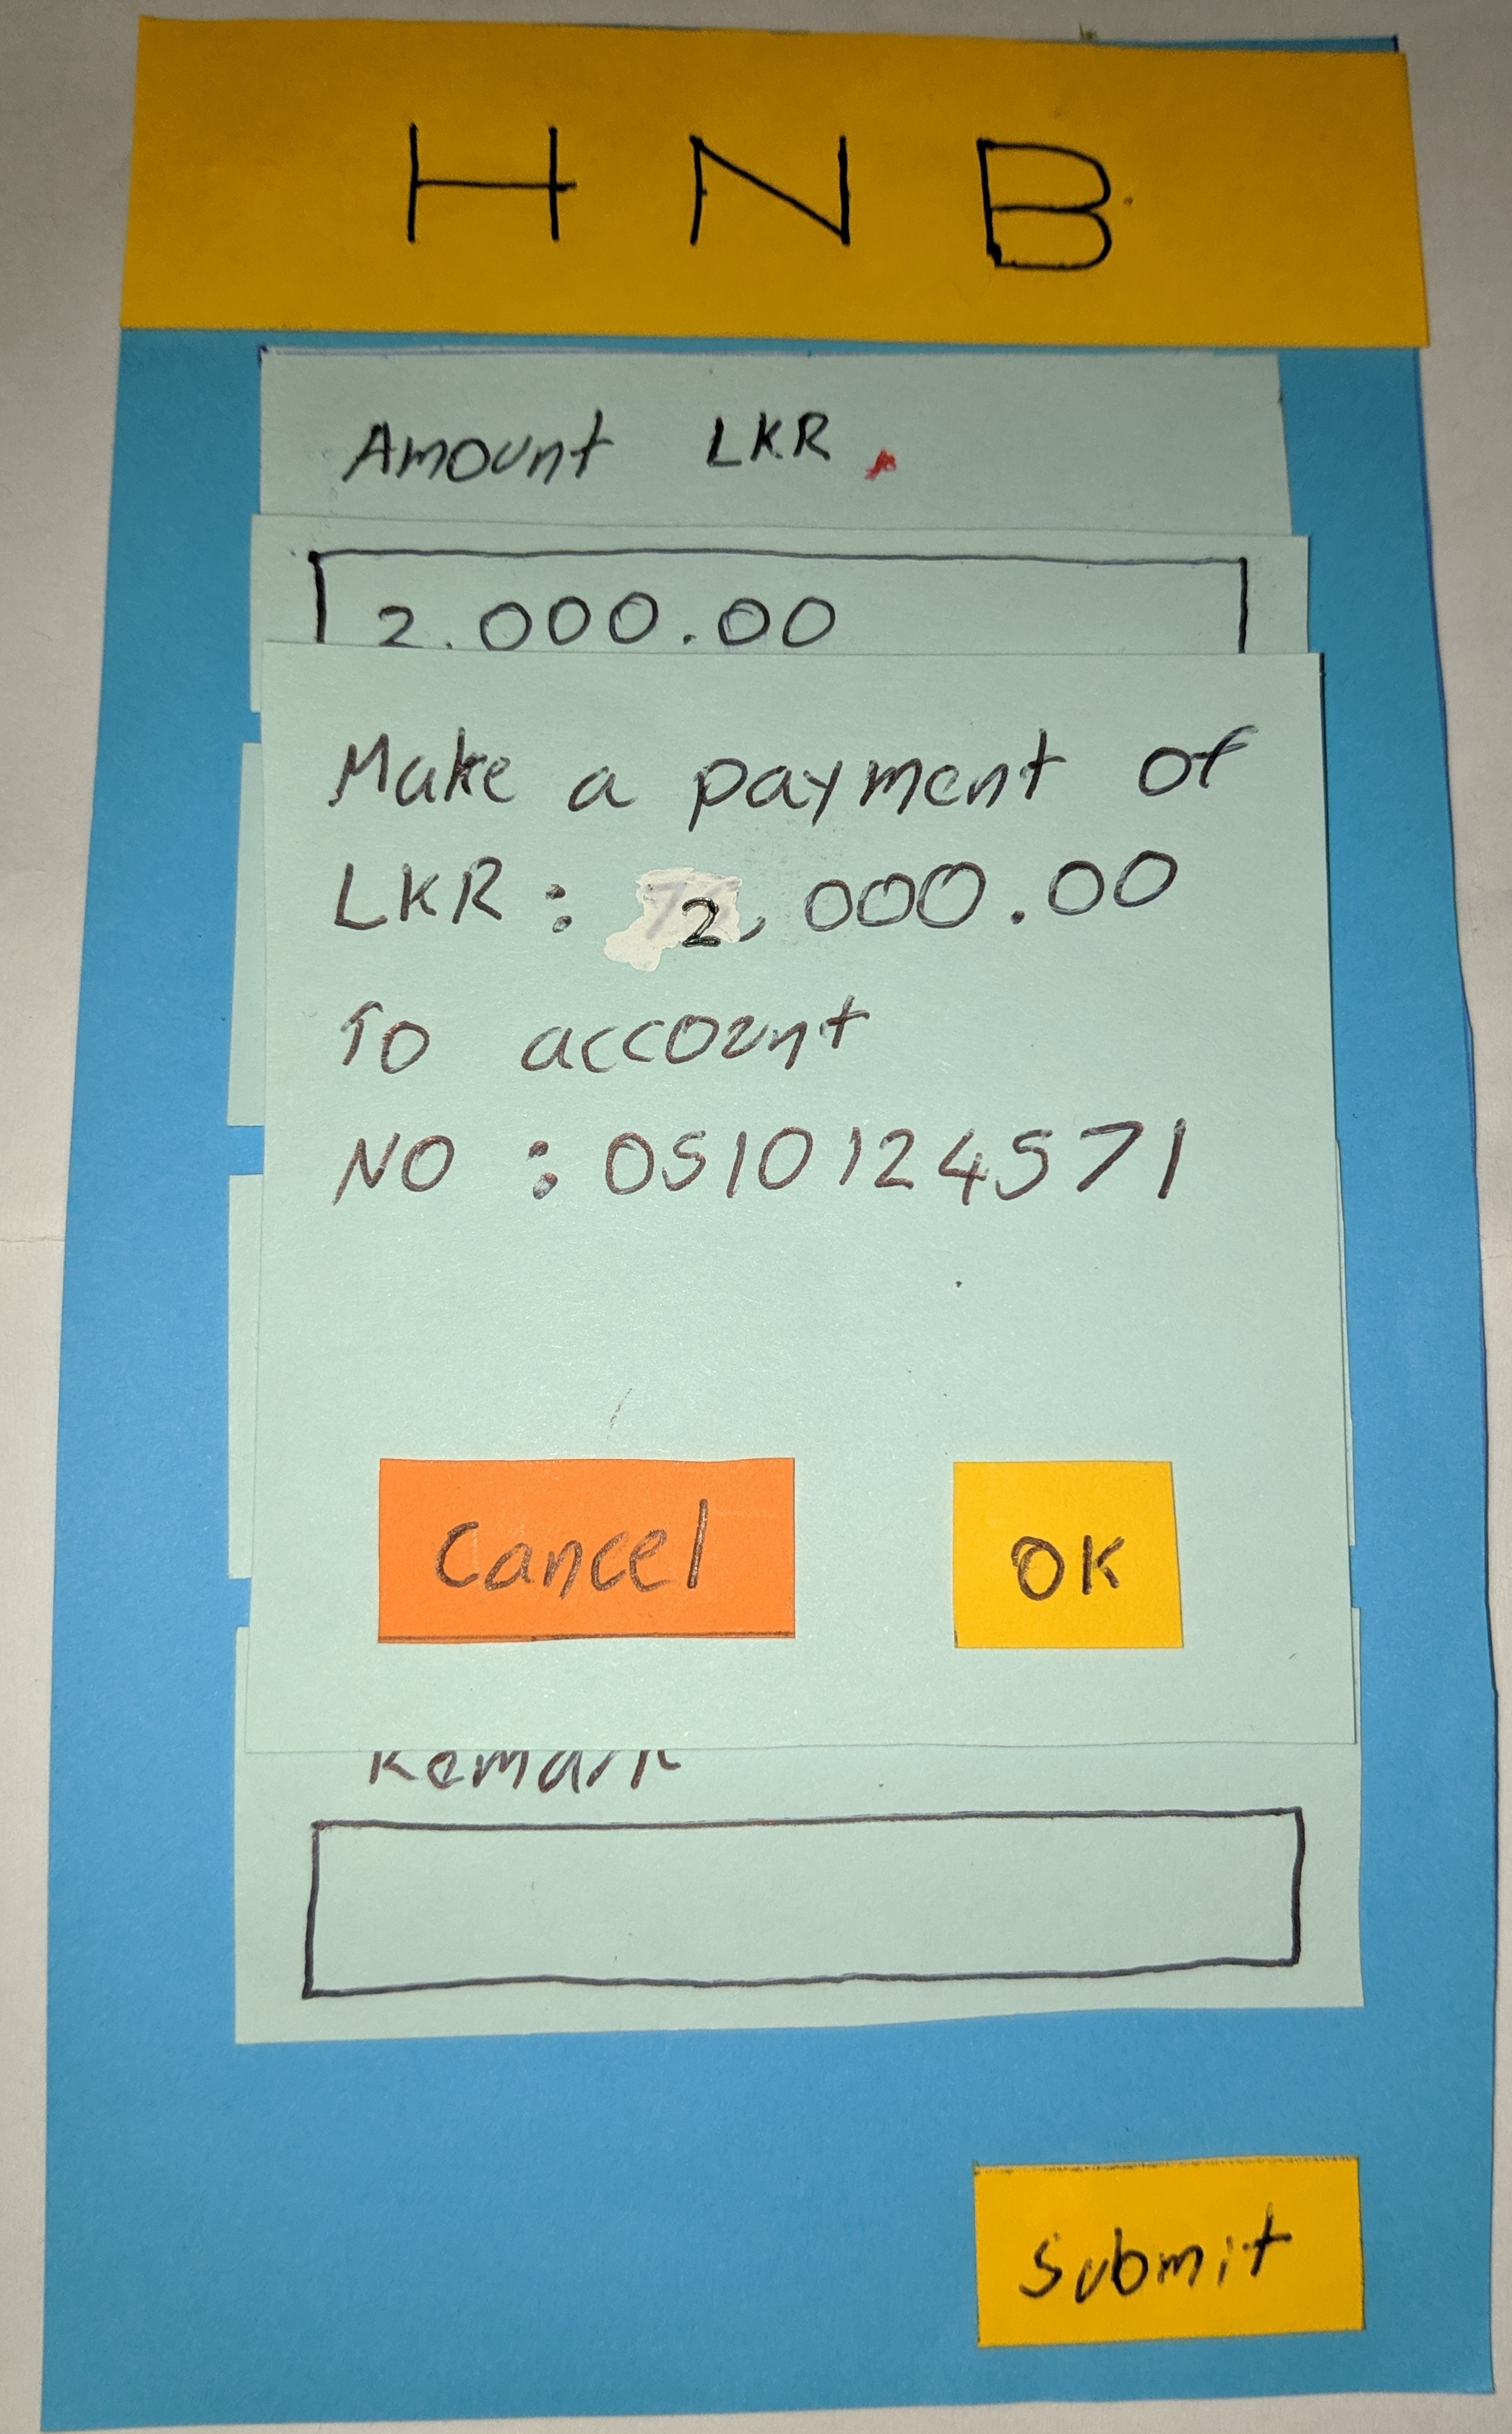 H N B
Amount LKR *
2.000.00
Make a payment of
LKR : 2,000.00
To account
NO : 0510124571
Cancel
OK
Remark
Submit